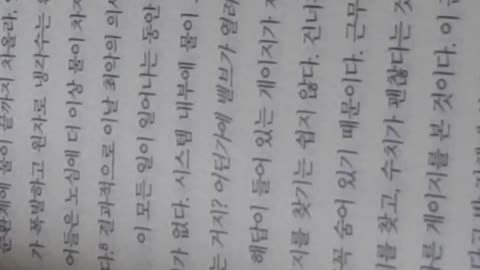 물이 끝까지 차올라,
가 폭발하고 원자로 냉각수는
아들은 노심에 더 이상 물이 차지
다.8 결과적으로 이날 최악의 의사
이 모든 일이 일어나는 동안
가 없다. 시스템 내부에 물이
는 거지? 어딘가에 밸브가 열려
해답이 들어 있는 게이지가
지를 찾기는 쉽지 않다.
꼭 숨어 있기 때문이다. 근무
를 찾고, 수치가 괜찮다는 것
른 게이지를 본 것이다. 이